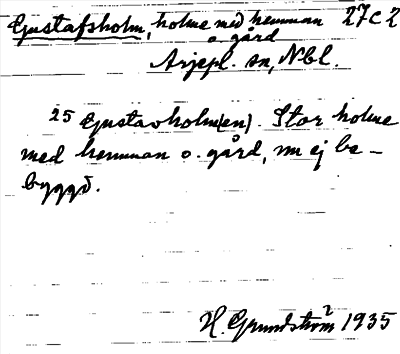 Gustafsholm, holme med hemman 27C2
o. gård
Arjepl. sn, Nbl.
25 Gustavholm(en). Stor holme
med hemman o. gård, nu ej be-
byggd.
H. Grundström 1935